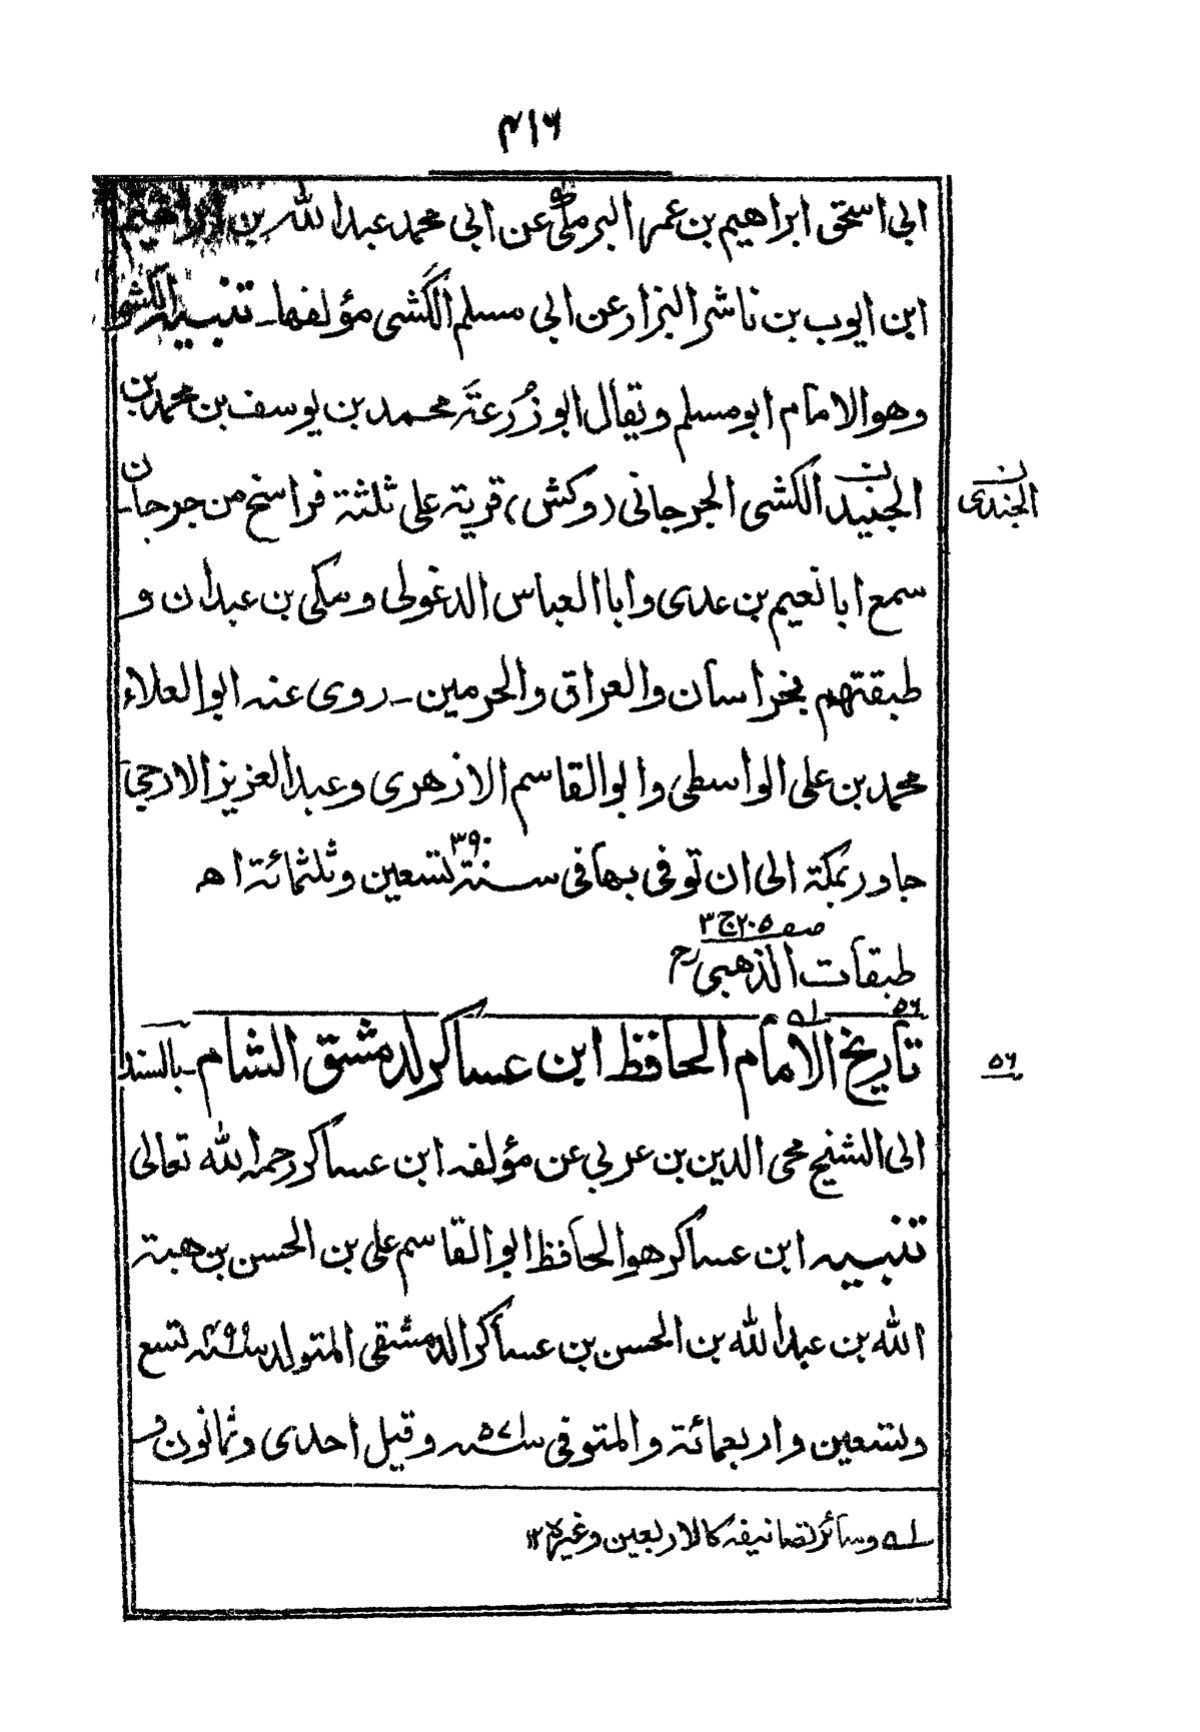 ٤١٦
ابی اسحٰق ابراهیم بن عمر البرمکی عن ابی محمد عبدالله بن ابراهیم
ابن ایوب بن ناشر البزار عن ابی مسلم الکشی مؤلفها۔ تنبیه الکشی
وهو الامام ابو مسلم ویقال ابو زُرعَة محمد بن یوسف بن محمد بن
الجنید الکشی الجرجانی (وکش) قریة علی ثلثة فراسخ من جرجان۔
الجندی
سمع ابا نعیم بن عدی وابا العباس الدغولی ومکی بن عبدان و
طبقتهم بخراسان والعراق والحرمین۔ روی عنه ابو العلاء
محمد بن علی الواسطی وابو القاسم الازهری وعبد العزیز الازجی
جاور بمکة الی ان توفی بها فی سنة ٣٩٠ تسعین وثلثمائة اھ
صفه ٢٠٥ ج ٣
طبقات الذهبی رح
٥٦ تاریخ الامام الحافظ ابن عساکر لدمشق الشام۔ بالسند
٥٦
الی الشیخ محی الدین بن عربی عن مؤلفه ابن عساکر رحمه الله تعالی
تنبیه ابن عساکر هو الحافظ ابو القاسم علی بن الحسن بن هبة
الله بن عبدالله بن الحسن بن عساکر الدمشقی المتولد سنه ٤٩٩ تسع
وتسعین واربعمائة والمتوفی سنه ٥٧١ وقیل احدی وثمانون و
له وسائر تصانیفه کالاربعین وغیره ١٢